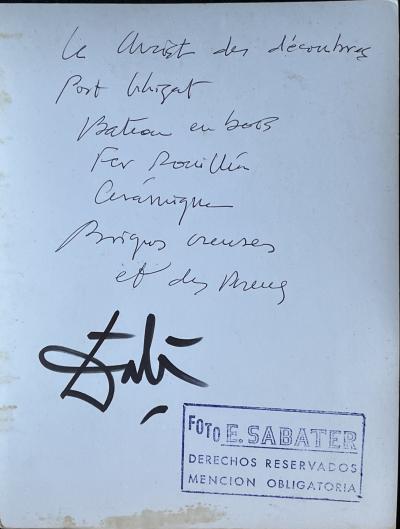 Le Christ des décombres
Port Lligat
Bateau en bois
Fer Rouillé
Céramique
Briques creuses
et des Pneus
Dalí
FOTO E. SABATER
DERECHOS RESERVADOS
MENCION OBLIGATORIA